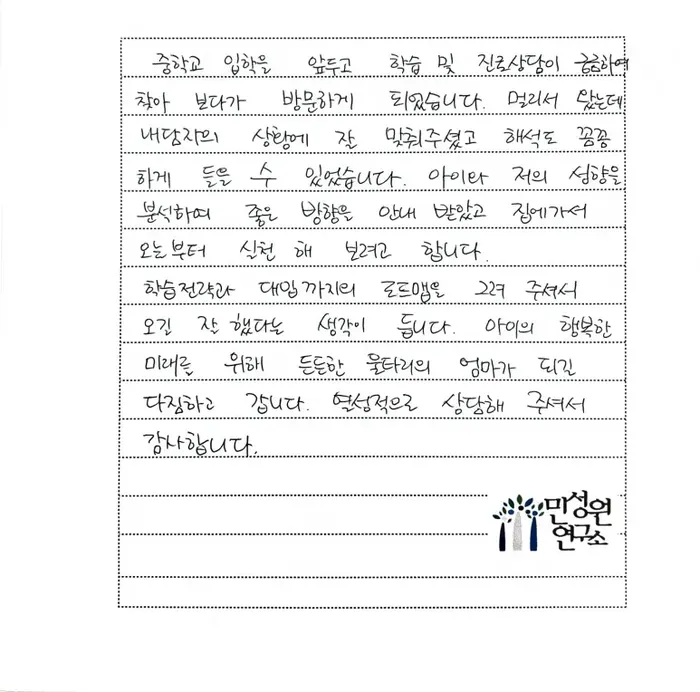 중학교 입학을 앞두고 학습 및 진로상담이 궁금하여
찾아 보다가 방문하게 되었습니다. 멀리서 왔는데
내담자의 상황에 잘 맞춰주셨고 해석도 꼼꼼
하게 들을 수 있었습니다. 아이와 저의 성향을
분석하여 좋은 방향을 안내 받았고 집에가서
오늘부터 실천 해 보려고 합니다.
학습전략과 대입까지의 로드맵을 그려 주셔서
오길 잘 했다는 생각이 듭니다. 아이의 행복한
미래를 위해 든든한 울타리의 엄마가 되길
다짐하고 갑니다. 열성적으로 상담해 주셔서
감사합니다.
민성원
연구소